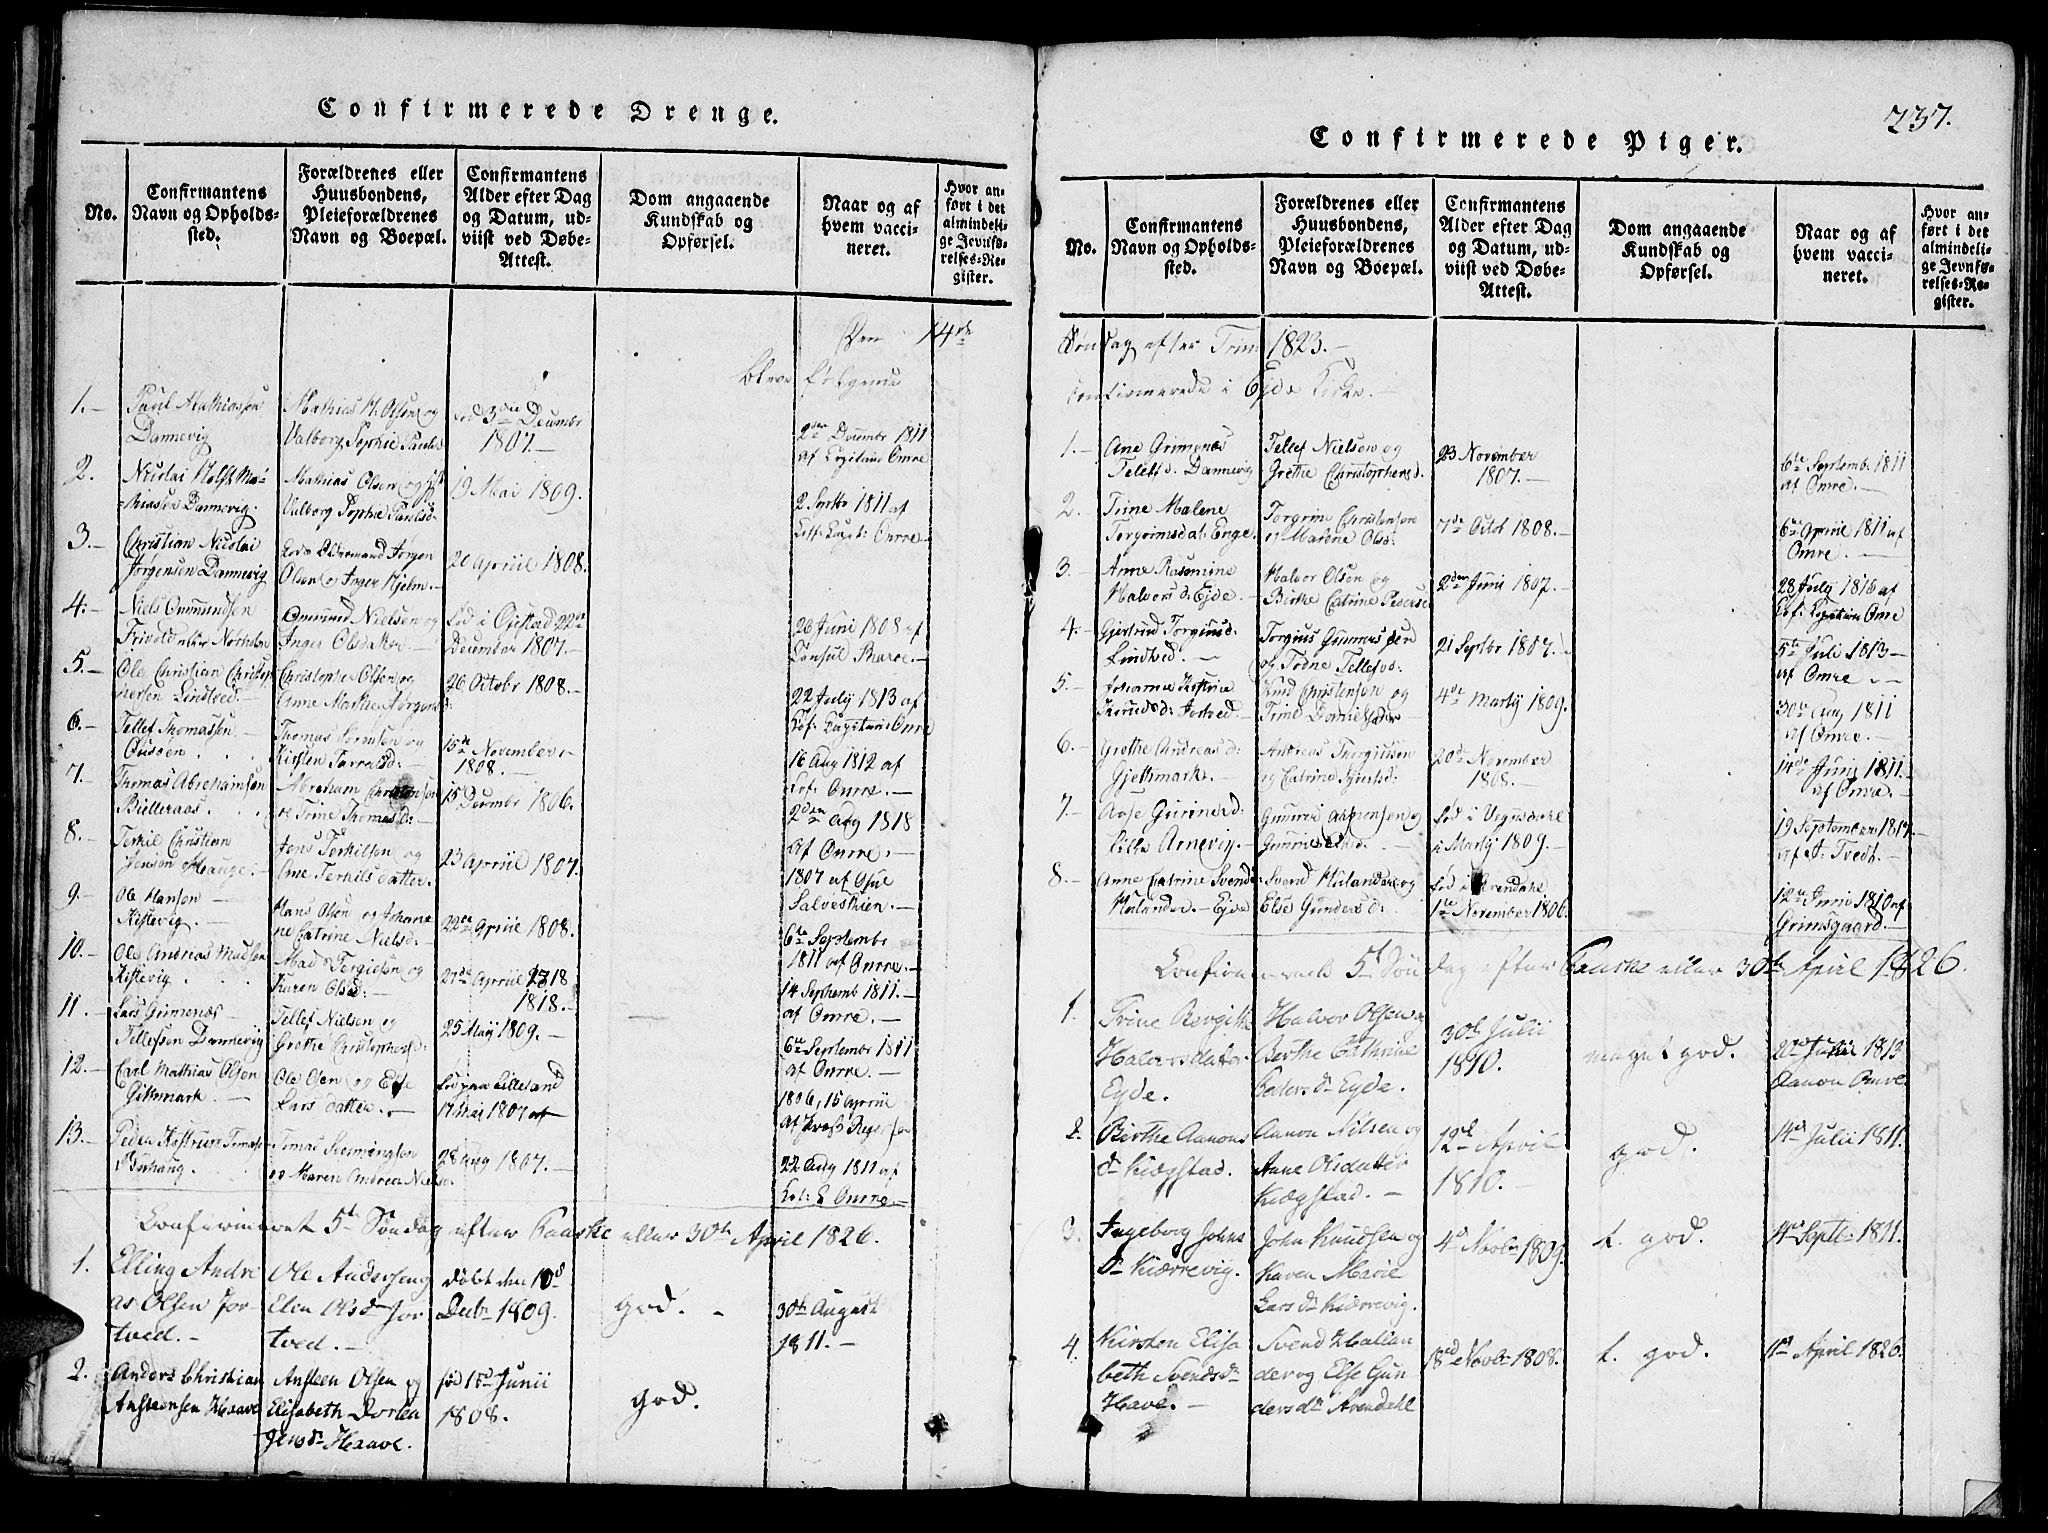 Confirmerede Drenge.
No.
Confirmantens
Navn og Opholds-
sted.
Forældrenes eller
Huusbondens,
Pleieforældrenes
Navn og Boepæl.
Confirmantens
Alder efter Dag
og Datum, ud-
viist ved Døbe-
Attest.
Dom angaaende
Kundskab og
Opførsel.
Naar og af
hvem vacci-
neret.
Hvor an-
ført i det
almindeli-
ge Jevnfø-
relses-Re-
gister.
Den 14de
bleve følgende
1.
Paul Mathiassen
Dannevig
Mathias H. Olsen og
Valborg Sophie Paulsd
fød 3den Decembr
1807.
2den Decembr 1811
af Capitain Omre
2.
Nicolai Holst Ma-
thiasen Dannevig.
Mathias Olsen og
Valborg Sophie Paulsd.
19 Mai 1809.
2 Septbr 1811 af
Omre
3.
Christian Nicolai
Jörgensen Dannevig
Jörgen
Olsen & Inger Hjelm.
20 Apriil 1808.
4.
Niels Omundsen
Omund Nielsen og
Inger Olsdatter.
fød i Öjestad 22de
December 1807.
26 Juni 1808 af
Consul
5.
Ole Christian Christop-
hersen Lindtved
Christopher Olsen og
Anne Marthe Jörgensd:
26 Octobr 1808.
22 July 1813 af
Capitain Omre
6.
Tellef Thomassen
Thomas Sörensen og
Kirsten Tarralsd:
15de November
1808.
16 Aug 1812 af
Omre.
7.
Thomas Abrahamsen
Bielleraas
Abraham Christensen
et Trine Thomasd:
15 Decembr 1806.
2den Aug 1818
af Omre.
8.
Terkil Christian
Jensen Hauge.
Jens Terkilsen og
Ane Terkilsdatter.
23 Apriil 1807.
1807 af
Salvesthien.
9.
Ole Hansen
Kittevig.
Hans Olsen og Johan-
ne Catrine Nielsd.
22de Apriil 1808.
6te Septembr
1811 af Omre.
10.
Ole Andreas Madsen
Kittevig
Mads Tergiesen og
Karen Olsd:
27de Apriil
1818.
14 Septemb 1811.
af Omre.
11.
Lars Grimenæs
Tellefsen Dannevig
Tellef Nielsen og
Grethe Christophersd:
25 May 1809.
6te Septembr 1811
af Omre.
12.
Carl Mathias Olsen
Gitmark.
Ole Olsen og Else
Lars datter.
fød paa Lillesand
17 Mai 1807
1806, 15 Apriil
af
13.
Tomas
og Maren Andrea Niels.
28 Aug 1807.
22 Aug 1811 af
Omre.
Confirmeret 5te Søndag efter Paaske eller 30te April 1826.
1.
Elling Andre
as Olsen Jor-
tved.
Ole Andersen og
Elen Olsdr Jor
tved.
døbt den 10d
Decbr 1809.
god.
30te August
1811.
2.
Anders Christian
Ansteensen Haave
Ansteen Olsen og
Elisabeth Dorthea
Jensdr Haave.
fød 15d Junii
1808.
god.
237.
Confirmerede Piger.
No.
Confirmantens
Navn og Opholds-
sted.
Forældrenes eller
Huusbondens,
Pleieforældrenes
Navn og Boepæl.
Confirmantens
Alder efter Dag
og Datum, ud-
viist ved Døbe-
Attest.
Dom angaaende
Kundskab og
Opførsel.
Naar og af
hvem vacci-
neret.
Hvor an-
ført i det
almindeli-
ge Jevnfø-
relses-Re-
gister.
Søndag efter Trin 1823.
confirmerede i Ejde Kirke.
1.
Ane Grimenæs
Telefsd. Dannevig
Tellef Nielsen og
Grethe Christophersd.
23 November
1807.
6te Septemb. 1811
af Omre.
2.
Trine Malene
Torgrimsdat. Enge.
Torgrim Christensen
og Malene Olsd:
7de Octob 1808.
6te Apriil 1811 af
Omre.
3.
Anne Rasmine
Halvorsd: Ejde.
Halvor Olsen og
Birthe Catrine Peders
2den Juni 1807.
28 July 1816 af
Capitain Omre
4.
Gjertrud Torgiusd.
Lindtved.
Torgius Gunnersen
og Todne Tellefsd:
21 Septbr 1807.
5te Juli 1813
af Omre.
5.
Knud Christensen og
Trine Daniels
4de Marty 1809.
30te Aug 1811
af Omre.
6.
Grethe Andreasd:
Gjethmark.
Andreas Thergiusen
og Catrine
20de November
1808.
14de Junii 1811.
af Omre.
7.
Aase Gunnersd:
Lille Arnevig.
Gunner
fød i Vegusdahl
Marty 1809.
19 September 1817.
af A: Tvedt.
8.
Anne Catrine Svends
Hulander. Ejde
Svend Hulander og
Else Gundersd:
fød i Arendahl
1te November 1806.
12te Junii 1810 af
Grimsgaard.
Confirmerede 5te Søndag efter Paaske eller 30te April 1826.
1.
Trine Bergithe
Halvorsdatter
Eyde.
Halvor Olsen
Berthe Cathrine
Pedersdr Eyde.
30te Julii
1810.
maget god.
22d Julii 1813
Aanon Omre
2.
Birthe Aanons
dr Kiægstad.
Aanon Nilsen og
Anne Olsdatter
Kiægstad.
12d April
1810.
god.
14d Julii 1811.
3.
Ingeborg Johns
dr Kiærrevig.
John Knudsen og
Karen Marie
Larsdr Kiærrevig.
4d Novbr 1809.
t. god.
14d Septbr 1811.
4.
Kirsten Elisa
beth Svendsdr
Have.
Svend Hullan
der og Else Gun
dersdr Arendahl
18d Novbr 1808.
t. god.
11d April 1826.